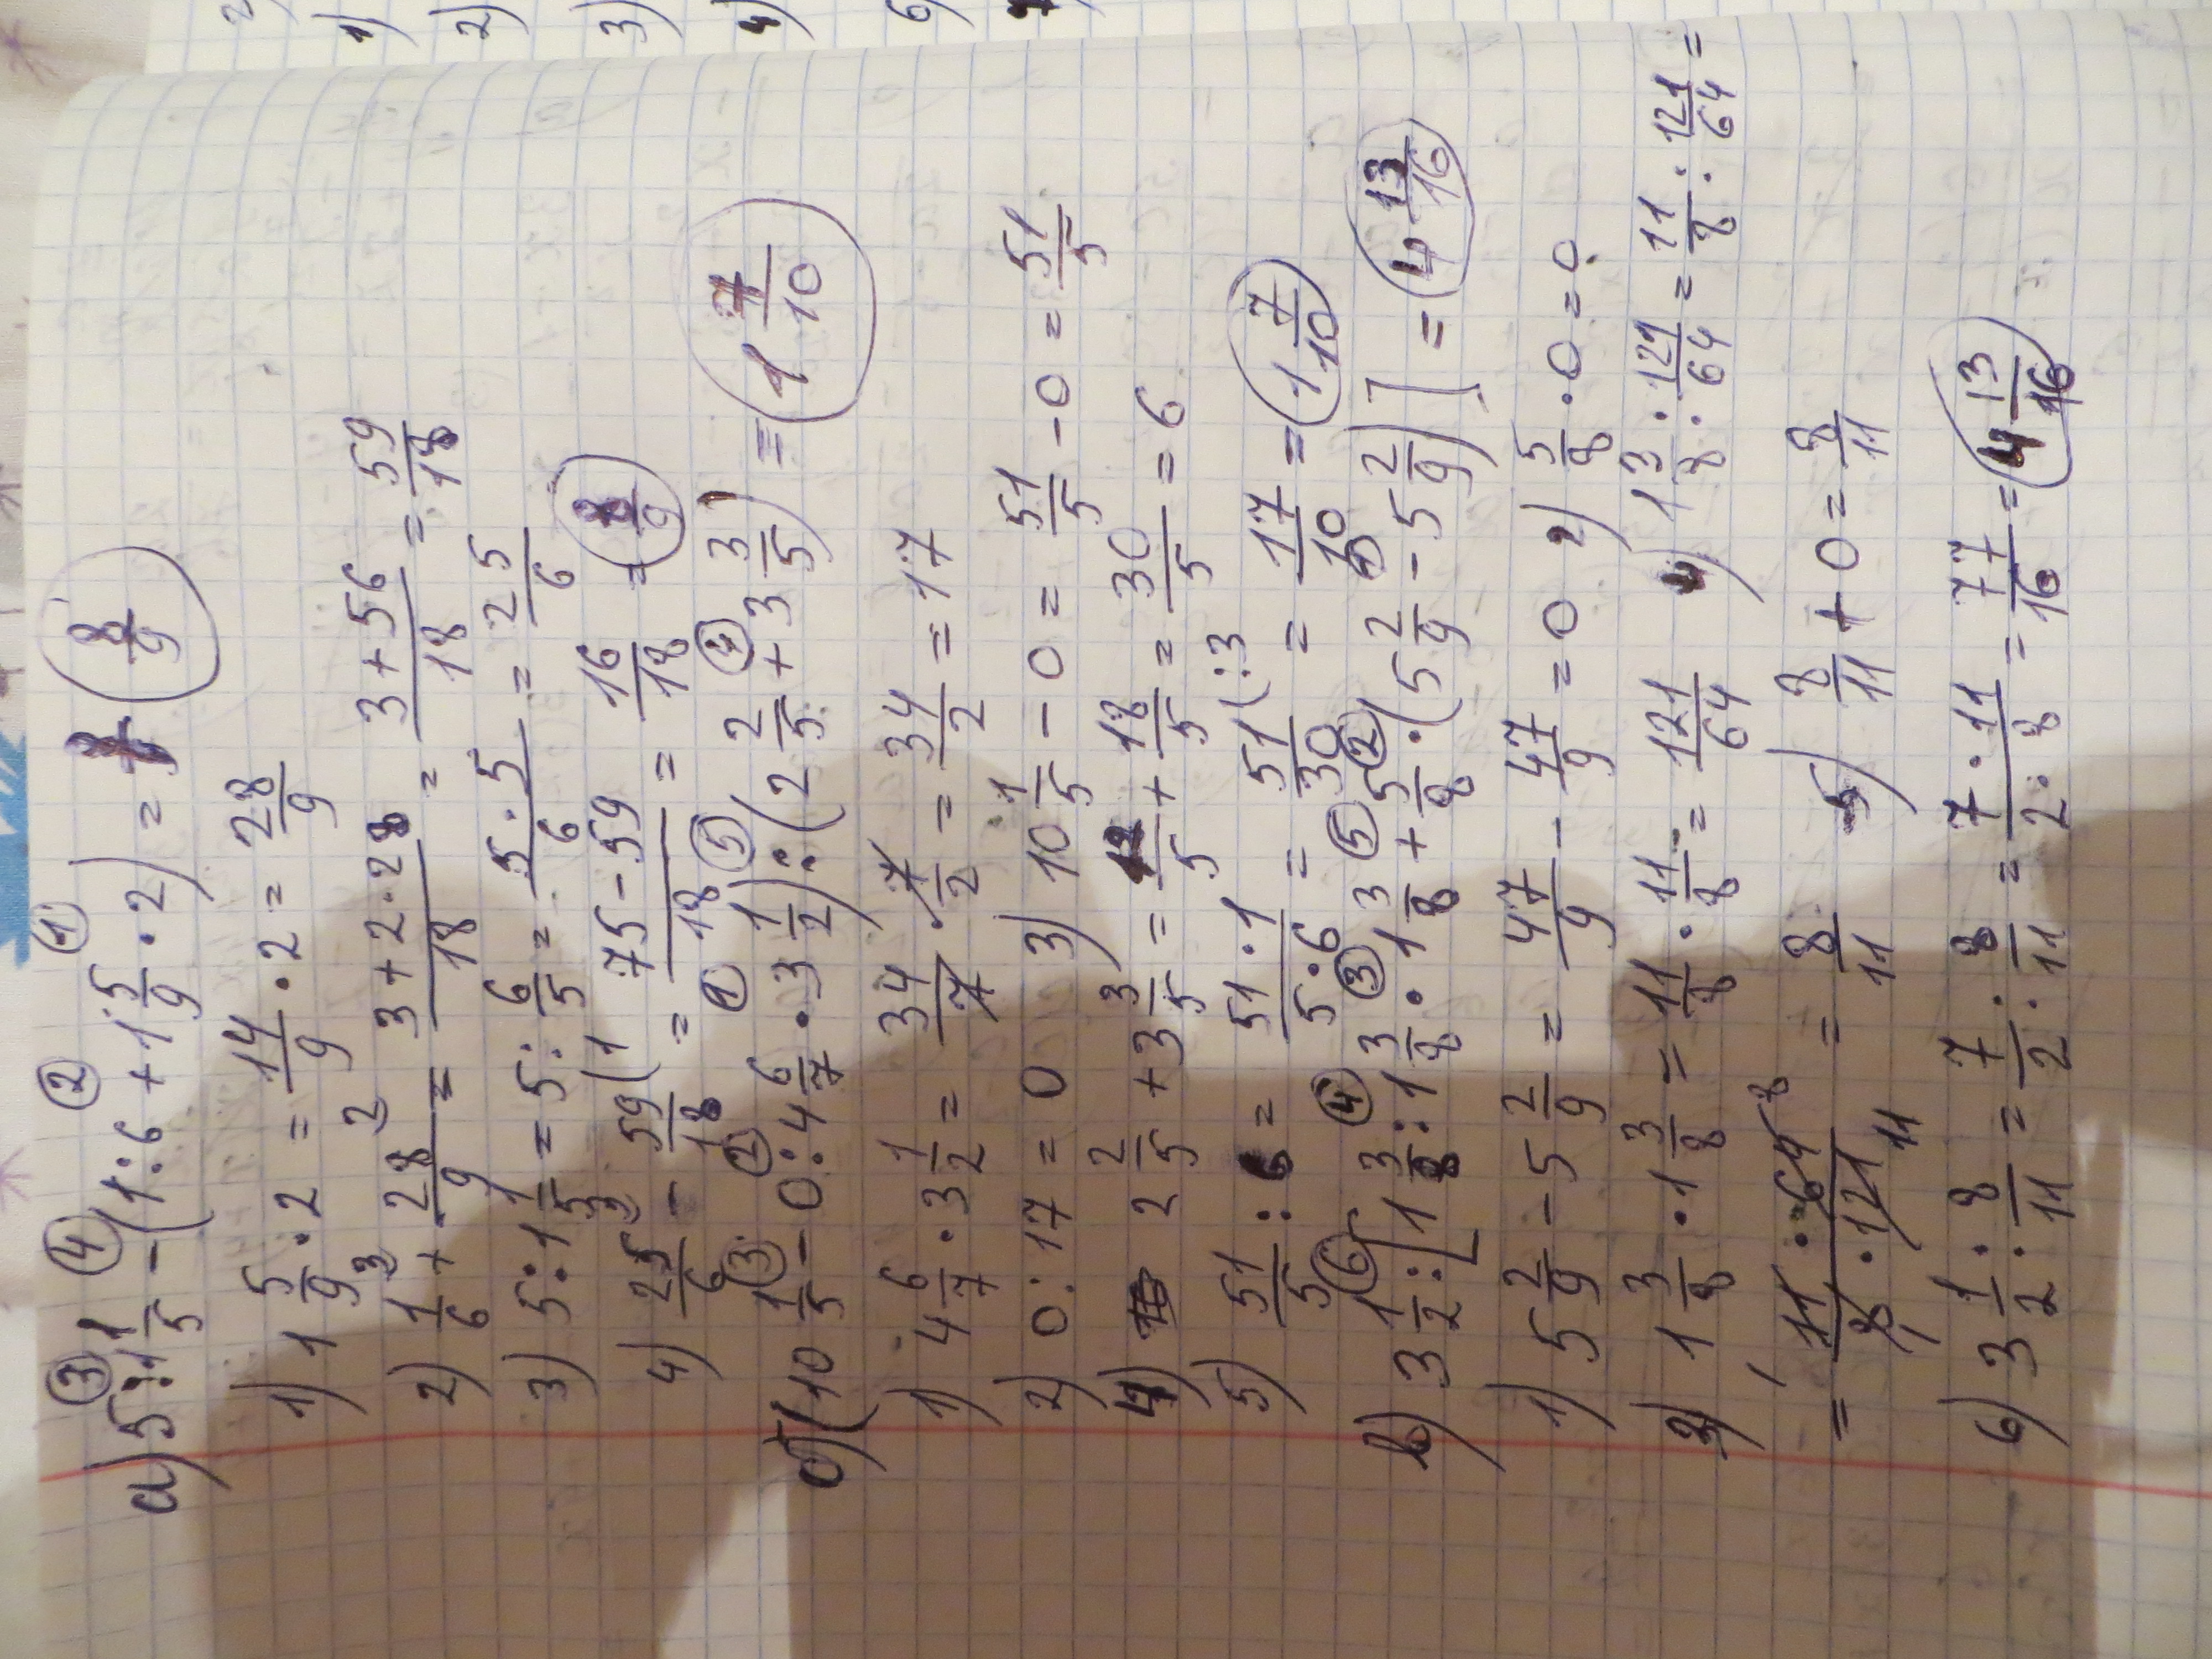 а) 5 : 1 1/5 - (1 : 6 + 1 5/9 · 2) = 8/9
1) 1 5/9 · 2 = 14/9 · 2 = 28/9
2) 1/6 + 28/9 = 3+2·28/18 = 3+56/18 = 59/18
3) 5 : 1 1/5 = 5 : 6/5 = 5·5/6 = 25/6
4) 25/6 - 59/18 = 75-59/18 = 16/18 = 8/9
б) (10 1/5 - 0 : 4 6/7 · 3 1/2) : (2 2/5 + 3 3/5) = 1 7/10
1) 4 6/7 · 3 1/2 = 34/7 · 7/2 = 34/2 = 17
2) 0 : 17 = 0 3) 10 1/5 - 0 = 51/5 - 0 = 51/5
4) 2 2/5 + 3 3/5 = 12/5 + 18/5 = 30/5 = 6
5) 51/5 : 6 = 51·1/5·6 = 51/30 (:3 = 17/10 = 1 7/10
в) 3 1/2 : [1 3/8 : 1 3/8 · 1 3/8 + 5/8 · (5 2/9 - 5 2/9)] = 4 13/16
1) 5 2/9 - 5 2/9 = 47/9 - 47/9 = 0 2) 5/8 · 0 = 0
3) 1 3/8 · 1 3/8 = 11/8 · 11/8 = 121/64 4) 1 3/8 : 121/64 = 11/8 : 121/64 =
= 11·64/8·121 = 8/11 5) 8/11 + 0 = 8/11
6) 3 1/2 : 8/11 = 7/2 : 8/11 = 7·11/2·8 = 77/16 = 4 13/16
1)
2)
3)
4)
6)